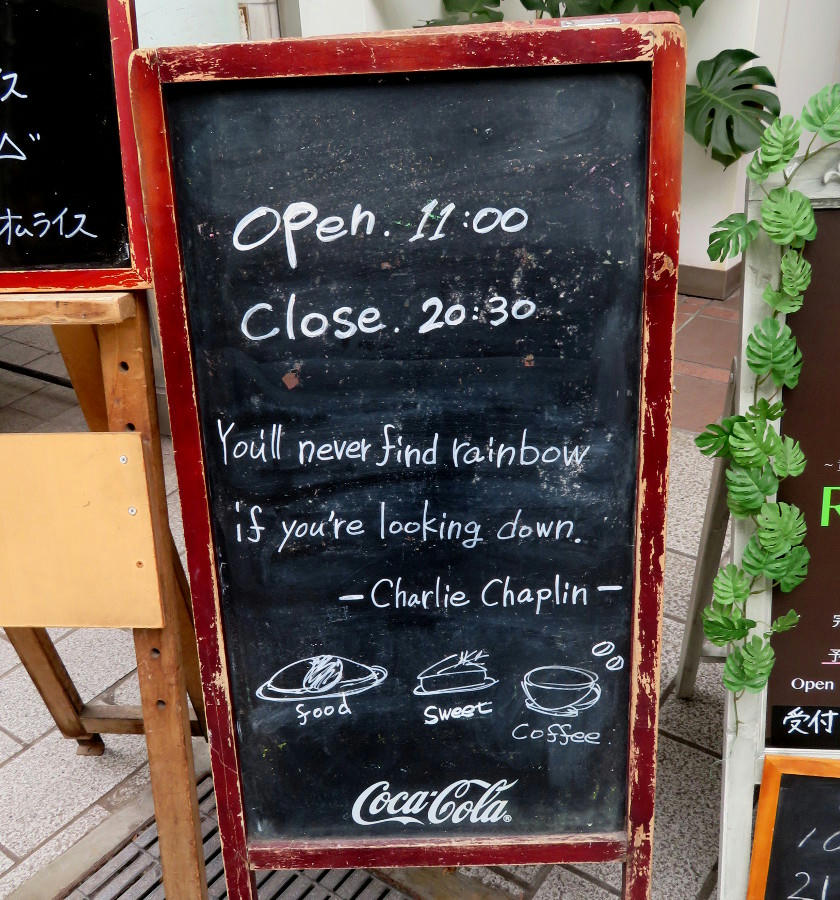 ス
オムライス
Open. 11:00
Close. 20:30
You'll never find rainbow
if you're looking down.
—Charlie Chaplin—
food
sweet
Coffee
Coca-Cola®
R
予
Open
受付